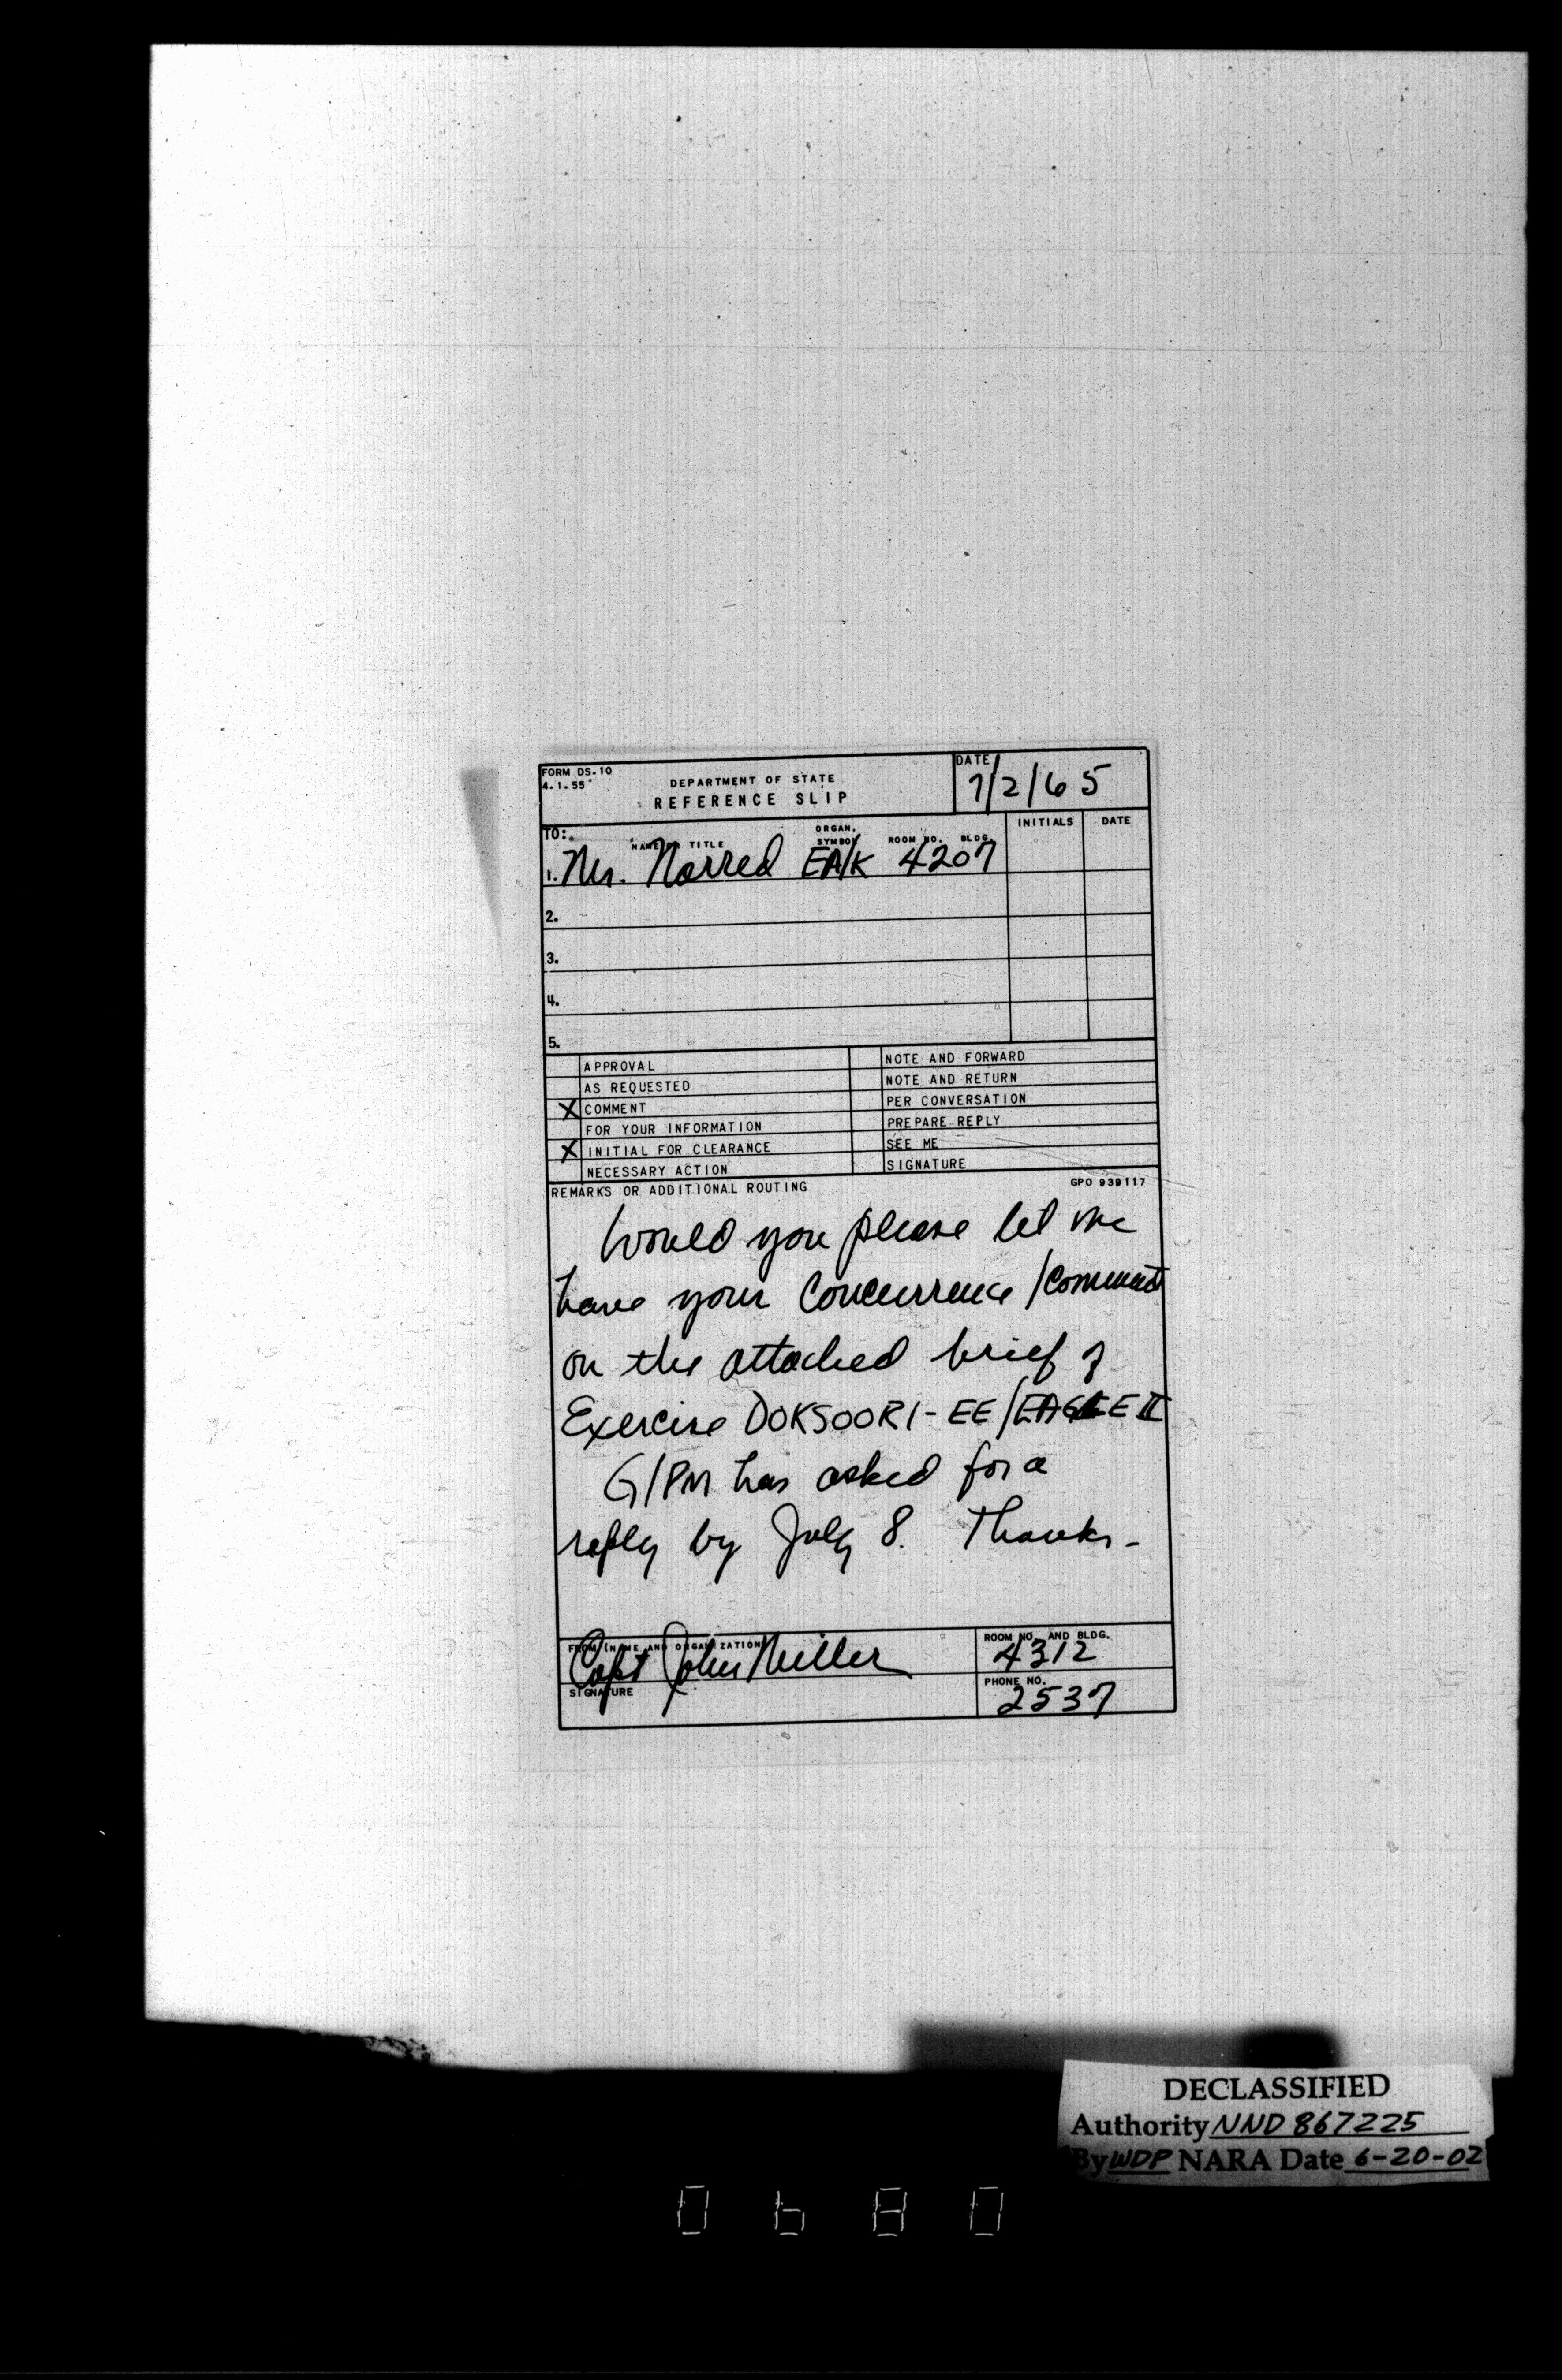 FORM DS-10
4-1-55
DEPARTMENT OF STATE
REFERENCE SLIP
DATE
7/2/65
TO:
NAME OR TITLE
ORGAN. SYMBOL
ROOM NO.
BLDG.
INITIALS
DATE
1. Mr. Norred EA/K 4207
2.
3.
4.
5.
APPROVAL
NOTE AND FORWARD
AS REQUESTED
NOTE AND RETURN
X COMMENT
PER CONVERSATION
FOR YOUR INFORMATION
PREPARE REPLY
X INITIAL FOR CLEARANCE
SEE ME
NECESSARY ACTION
SIGNATURE
REMARKS OR ADDITIONAL ROUTING
GPO 939117
Would you please let me
have your concurrence/comment
on the attached brief of
Exercise DOKSOORI-EE/EAGLE II
G/PM has asked for a
reply by July 8. Thanks-
FROM (NAME AND ORGANIZATION)
Capt John Miller
SIGNATURE
ROOM NO. AND BLDG.
4312
PHONE NO.
2537
DECLASSIFIED
Authority NND 867225
By WDP NARA Date 6-20-02
0680